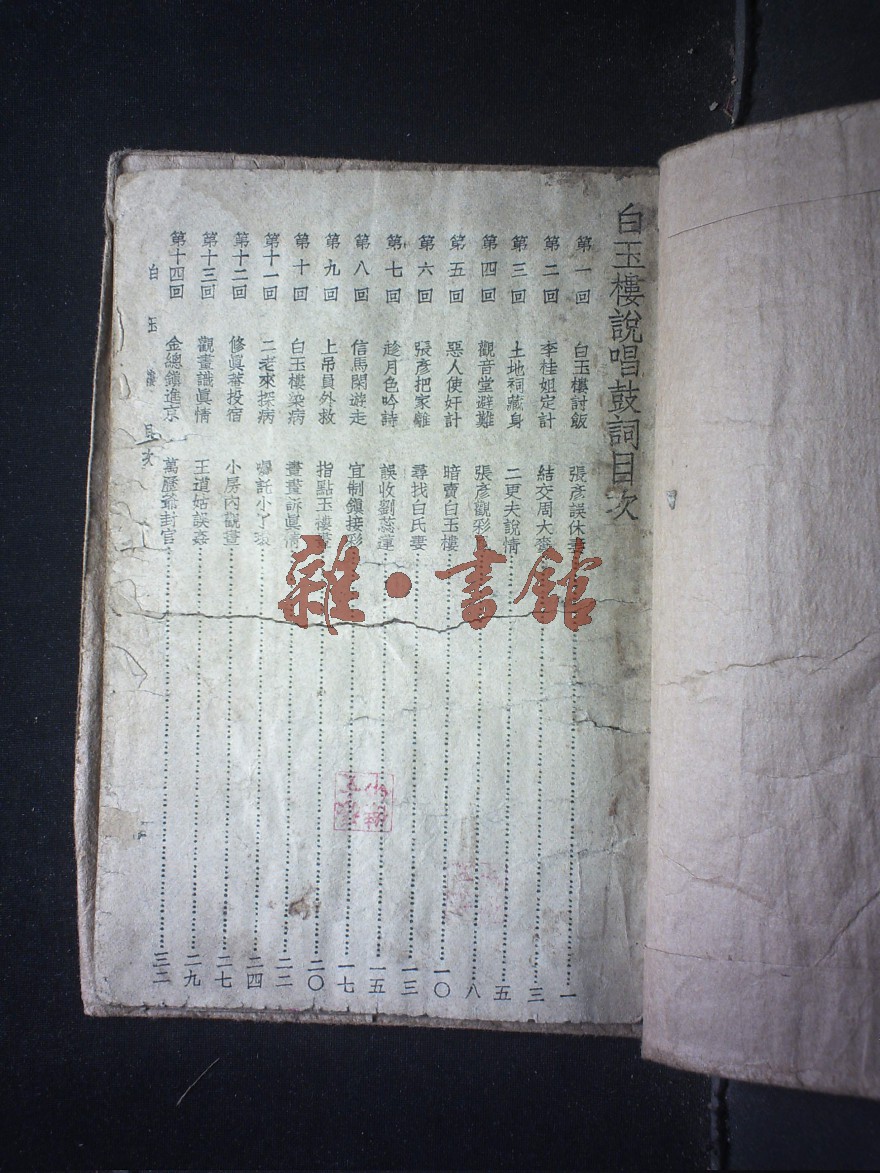 白玉樓說唱鼓詞目次
第一回 白玉樓討飯 張彥誤休妻 一
第二回 李桂姐定計 結交周大賚 三
第三回 土地祠藏身 二更夫說情 五
第四回 觀音堂避難 張彥觀彩 八
第五回 惡人使奸計 暗賣白玉樓 一〇
第六回 張彥把家離 尋找白氏妻 一三
第七回 趁月色吟詩 誤收劉蕊蓮 一五
第八回 信馬閑遊走 宜制鎮接彩 一七
第九回 上吊員外救 指點玉樓畫 二〇
第十回 白玉樓染病 畫畫訴眞情 二二
第十一回 二老來探病 囑託小丫環 二四
第十二回 修眞菴投宿 小房內觀畫 二七
第十三回 觀畫識眞情 王道姑誤姦 二九
第十四回 金總鎮進京 萬歷爺封官 三二
白玉樓 目次 一
雜·書館